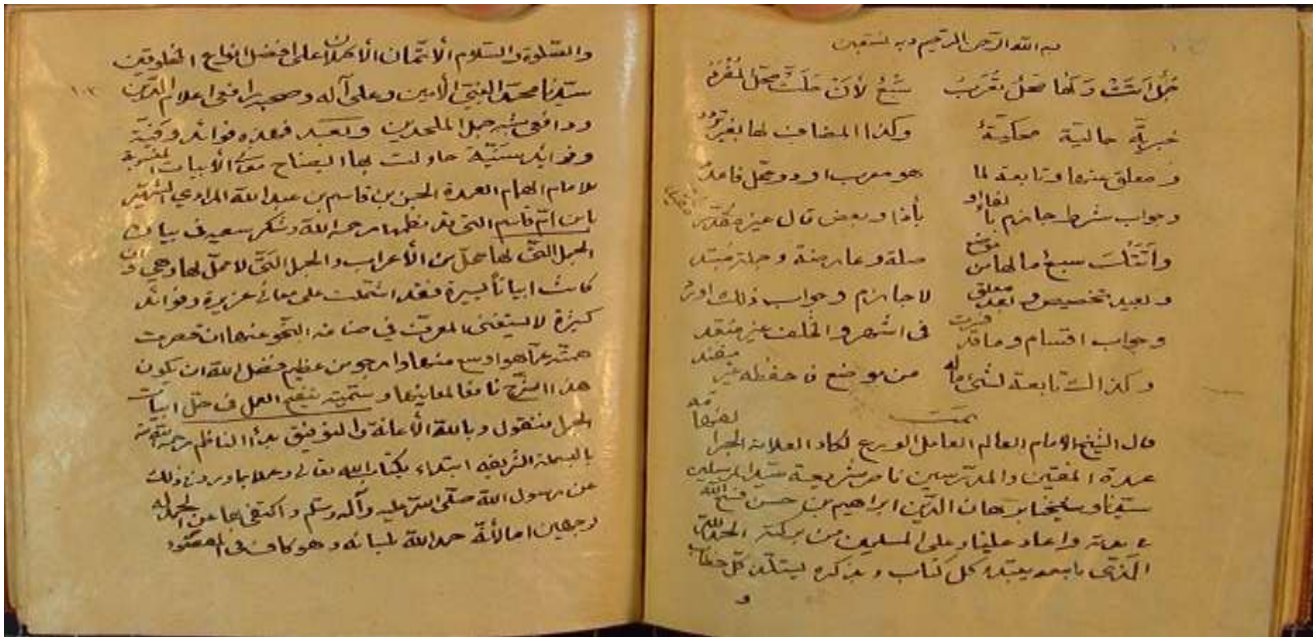 بسم الله الرحمن الرحيم وبه نستعين
جمل أتت ولها محل يعرب سبع لأن حلت محل المفرد
خبرية حالية محكية وكذا المضاف لها بغير تردد
ومعلق عنها وتابعة لما هو معرب أو ذو محل فاعدد
وجواب شرط جازم بالفاء أو بإذا وبعض قال غير مقيد
وأتتك سبع ما لها من موضع صلة وعارضة وجملة مبتد
وبعيد تخصيص وبعد معلق لا جازم وجواب ذلك أورد
وجواب أقسام وما قد فسرت في أشهر والخلف غير مفند
وكذلك تابعة لشيء ما له من موضع فاحفظه غير مفند
تمت
قال الشيخ الإمام العالم العامل الورع العلامة
عمدة المفتين والمدرسين ناصر شريعة سيد المرسلين
سيدنا وشيخنا برهان الدين ابراهيم بن حسن فسح الله
وأعاد علينا وعلى المسلمين من بركته الحمد لله
الذي باسمه يبتدء كل كتاب وبذكره كل خطاب
و
والصلوة والسلام الأتمان الأكملان على أفضل أنواع المخلوقين
سيدنا محمد النبي الأمين وعلى آله وصحبه رافعي أعلام الدين
ودافعي شبه الملحدين وبعد فهذه فوائد
وفرائد سنية حاولت بها ايضاح معاني الأبيات المنسوبة
للامام الهمام العمدة الحسن بن قاسم بن عبد الله المرادي الشهير
بابن أم قاسم التي قد نظمها رحمه الله وشكر سعيه في بيان
الجمل التي لها محل من الأعراب والجمل التي لا محل لها وهي وان
كانت أبياتا يسيرة فقد اشتملت على معاني غزيرة وفوائد
كثيرة لا يستغني المعرب في صناعة النحو عنها ان قصرت
همته عما هو أوسع منها وأرجو من عظيم فضل الله ان يكون
هذا الشرح نافعا لمعانيها وسميته في حل أبيات
الجمل فنقول وبالله الأعانة والتوفيق بدأ الناظم رحمه الله
بالبسملة الشريفة اقتداء بكتاب الله تعالى وعملا بما ورد في ذلك
عن رسول الله صلى الله عليه وآله وسلم واكتفى بها عن الحمدلة
لوجهين اما لأنه حمد الله بلسانه وهو كاف في المقصود